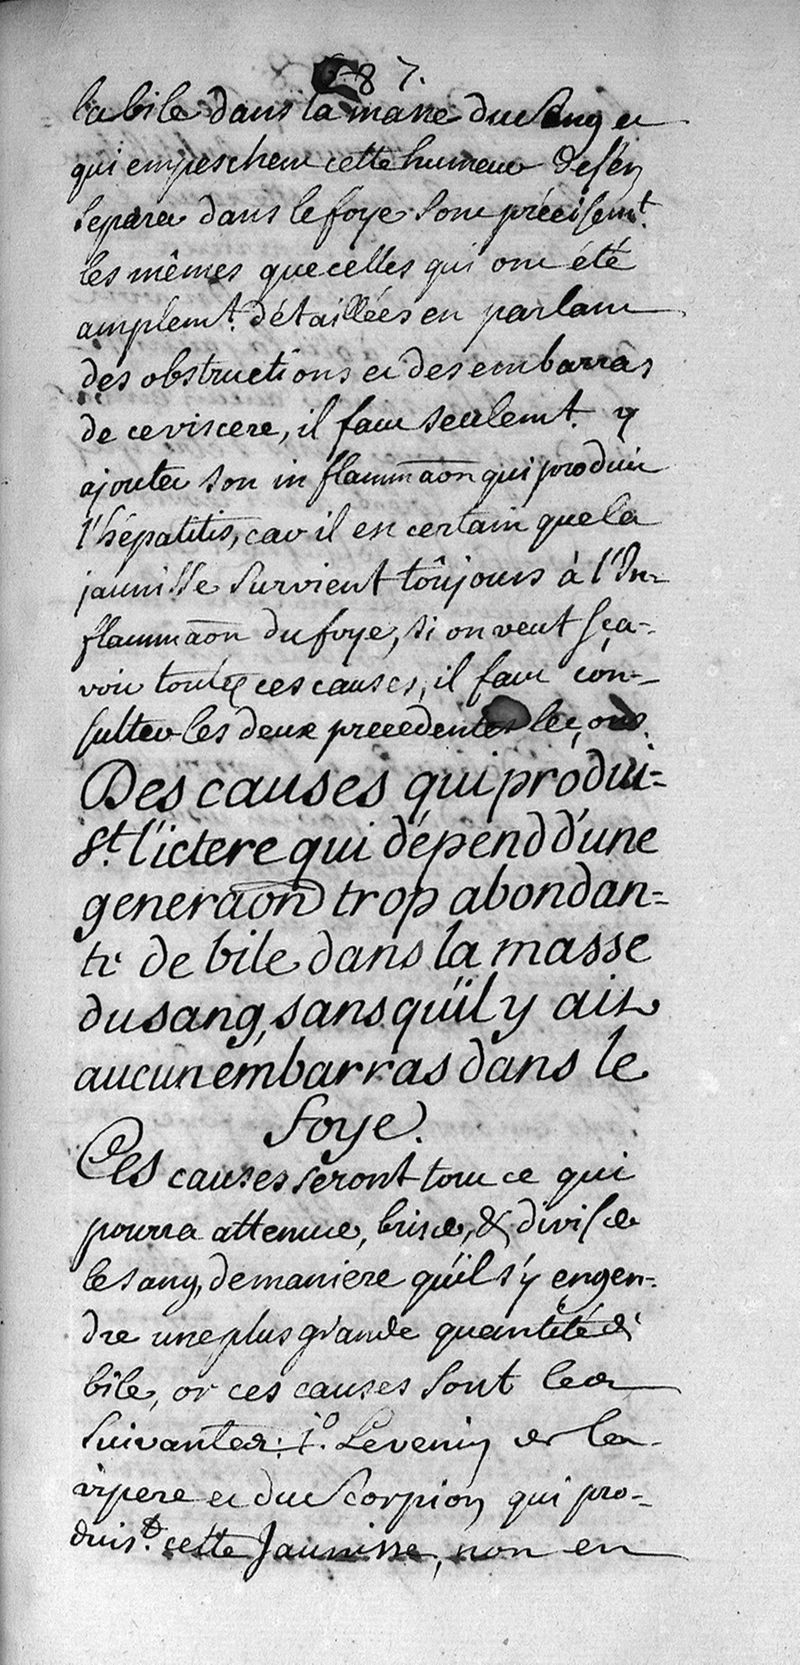 587.
la bile dans la masse du Sang et
qui empeschent cette humeur de s'en
separer dans le foye sont précisemt.
les mêmes que celles qui ont été
amplemt. détaillées en parlant
des obstructions et des embarras
de ce viscere, il faut seulemt. y
ajouter son inflammaōn qui produit
l'hépatitis, car il est certain que la
jaunisse survient toûjours à l'In-
flammaōn du foye, si on veut sça-
voir toutes ces causes, il faut con-
sulter les deux precedentes leçons.
Des causes qui produi-
st. l'ictere qui dépend d'une
generaōn trop abondan-
te de bile dans la masse
du sang, sans qu'il y ait
aucun embarras dans le
foye.
Ces causes seront tout ce qui
pourra attenuer, briser, & diviser
le sang, de maniere qu'il s'y engen-
dre une plus grande quantité de
bile, or ces causes sont les
suivantes: 1o. Le venin de la
vipere et du Scorpion qui pro-
duist. cette Jaunisse, non en